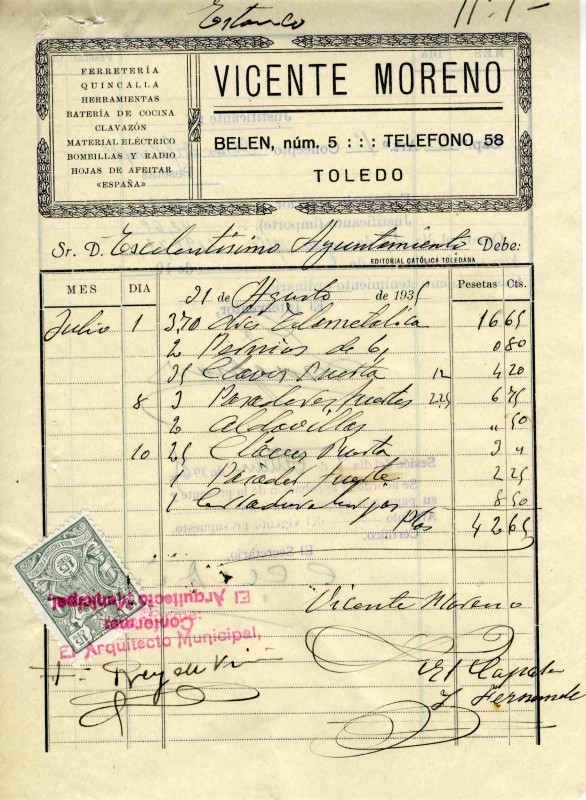 Estanco
FERRETERÍA
QUINCALLA
HERRAMIENTAS
BATERÍA DE COCINA
CLAVAZÓN
MATERIAL ELÉCTRICO
BOMBILLAS Y RADIO
HOJAS DE AFEITAR
«ESPAÑA»
VICENTE MORENO
BELEN, núm. 5 : : : TELEFONO 58
TOLEDO
Sr. D. Escelentisimo Ayuntamiento Debe:
EDITORIAL CATÓLICA TOLEDANA
MES DIA Pesetas Cts.
31 de Agosto de 1935
Julio 1 3,70 Telametalica 16 65
2 Pernios de 0 80
35 Clavos Puerta 12 4 20
8 3 Pasadores fuertes 2,25 6 75
2 Aldavillas " 50
10 25 Clavos Puerta 3 "
1 Pasador fuerte 2 25
1 Cerradura 8 50
Ptas 42 65
Vicente Moreno
Conforme
El Arquitecto Municipal,
El Arquitecto Municipal,
15